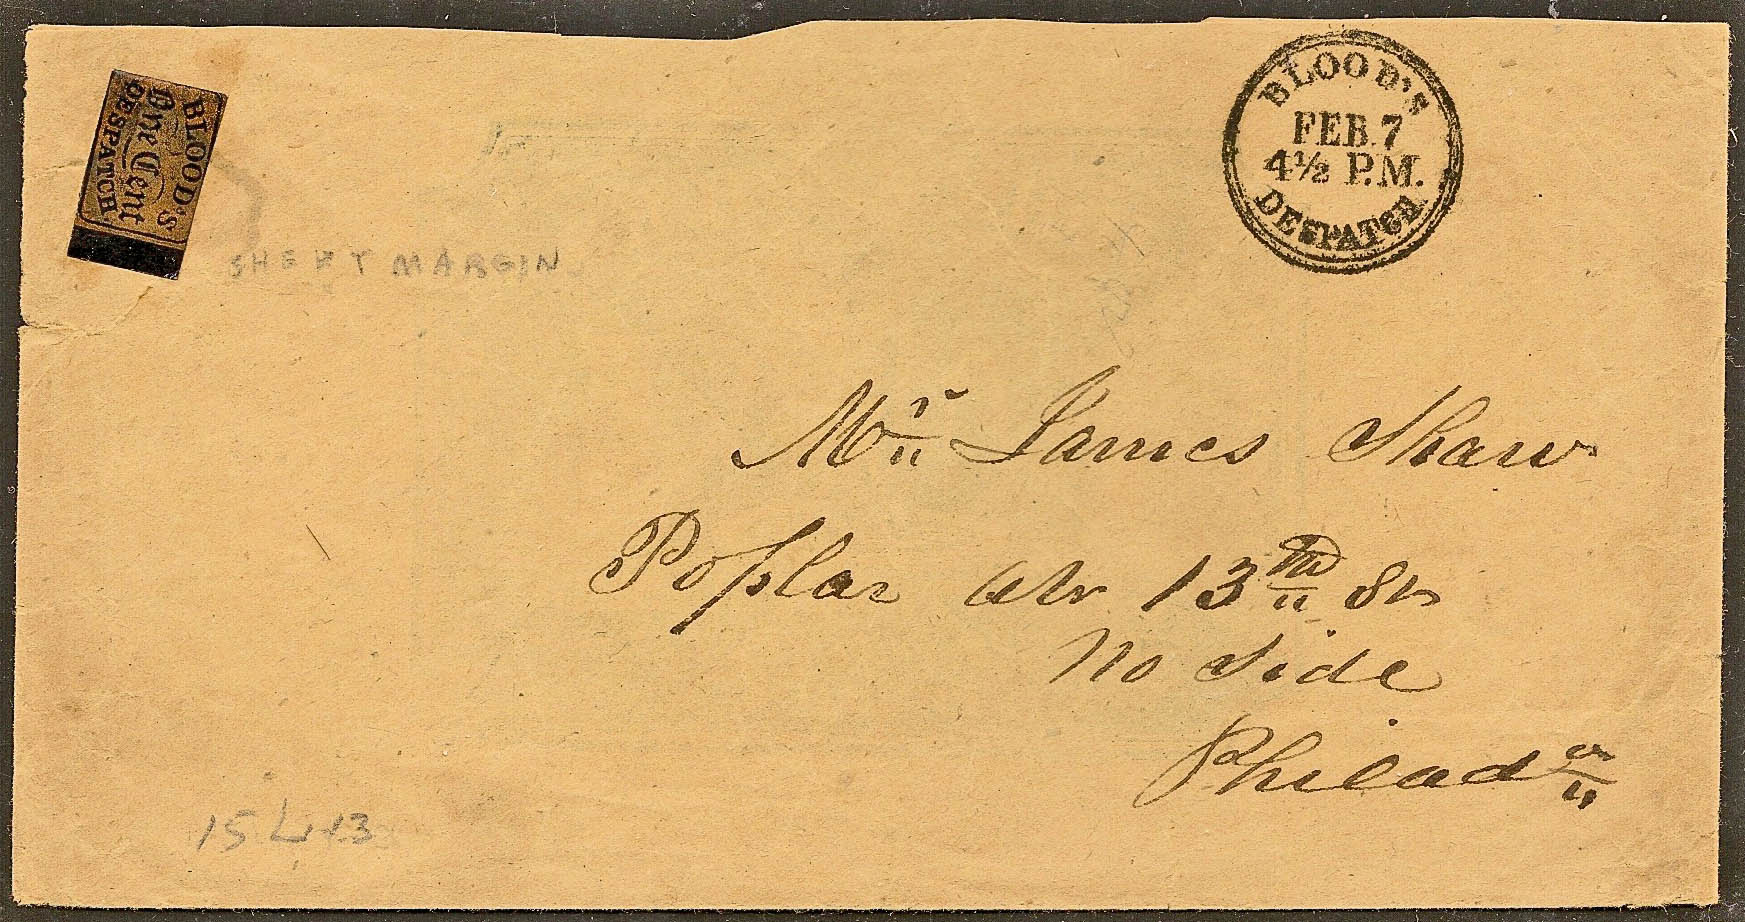 BLOOD'S
One Cent
DESPATCH
BLOOD'S
FEB. 7
4½ P.M.
DESPATCH
SHEET MARGIN
Mr James Shaw
Poplar abv 13th St
No Side
Philada
15L13